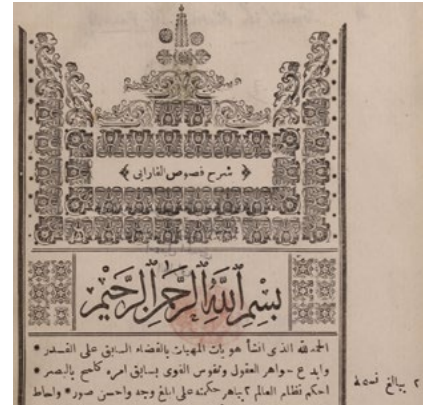 ﴿ شرح فصوص الفارابى ﴾
بِسْمِ ٱللَّهِ ٱلرَّحْمَٰنِ ٱلرَّحِيمِ
الحمد لله الذى انشأ هويات المهيات بالقضاء السابق على القدر *
وابدع جواهر العقول ونفوس القوى بسابق امره كلمح بالبصر *
احكم نظام العالم ٢ بباهر حكمته على ابلغ وجه واحسن صور * واحاط
٢ ببالغ